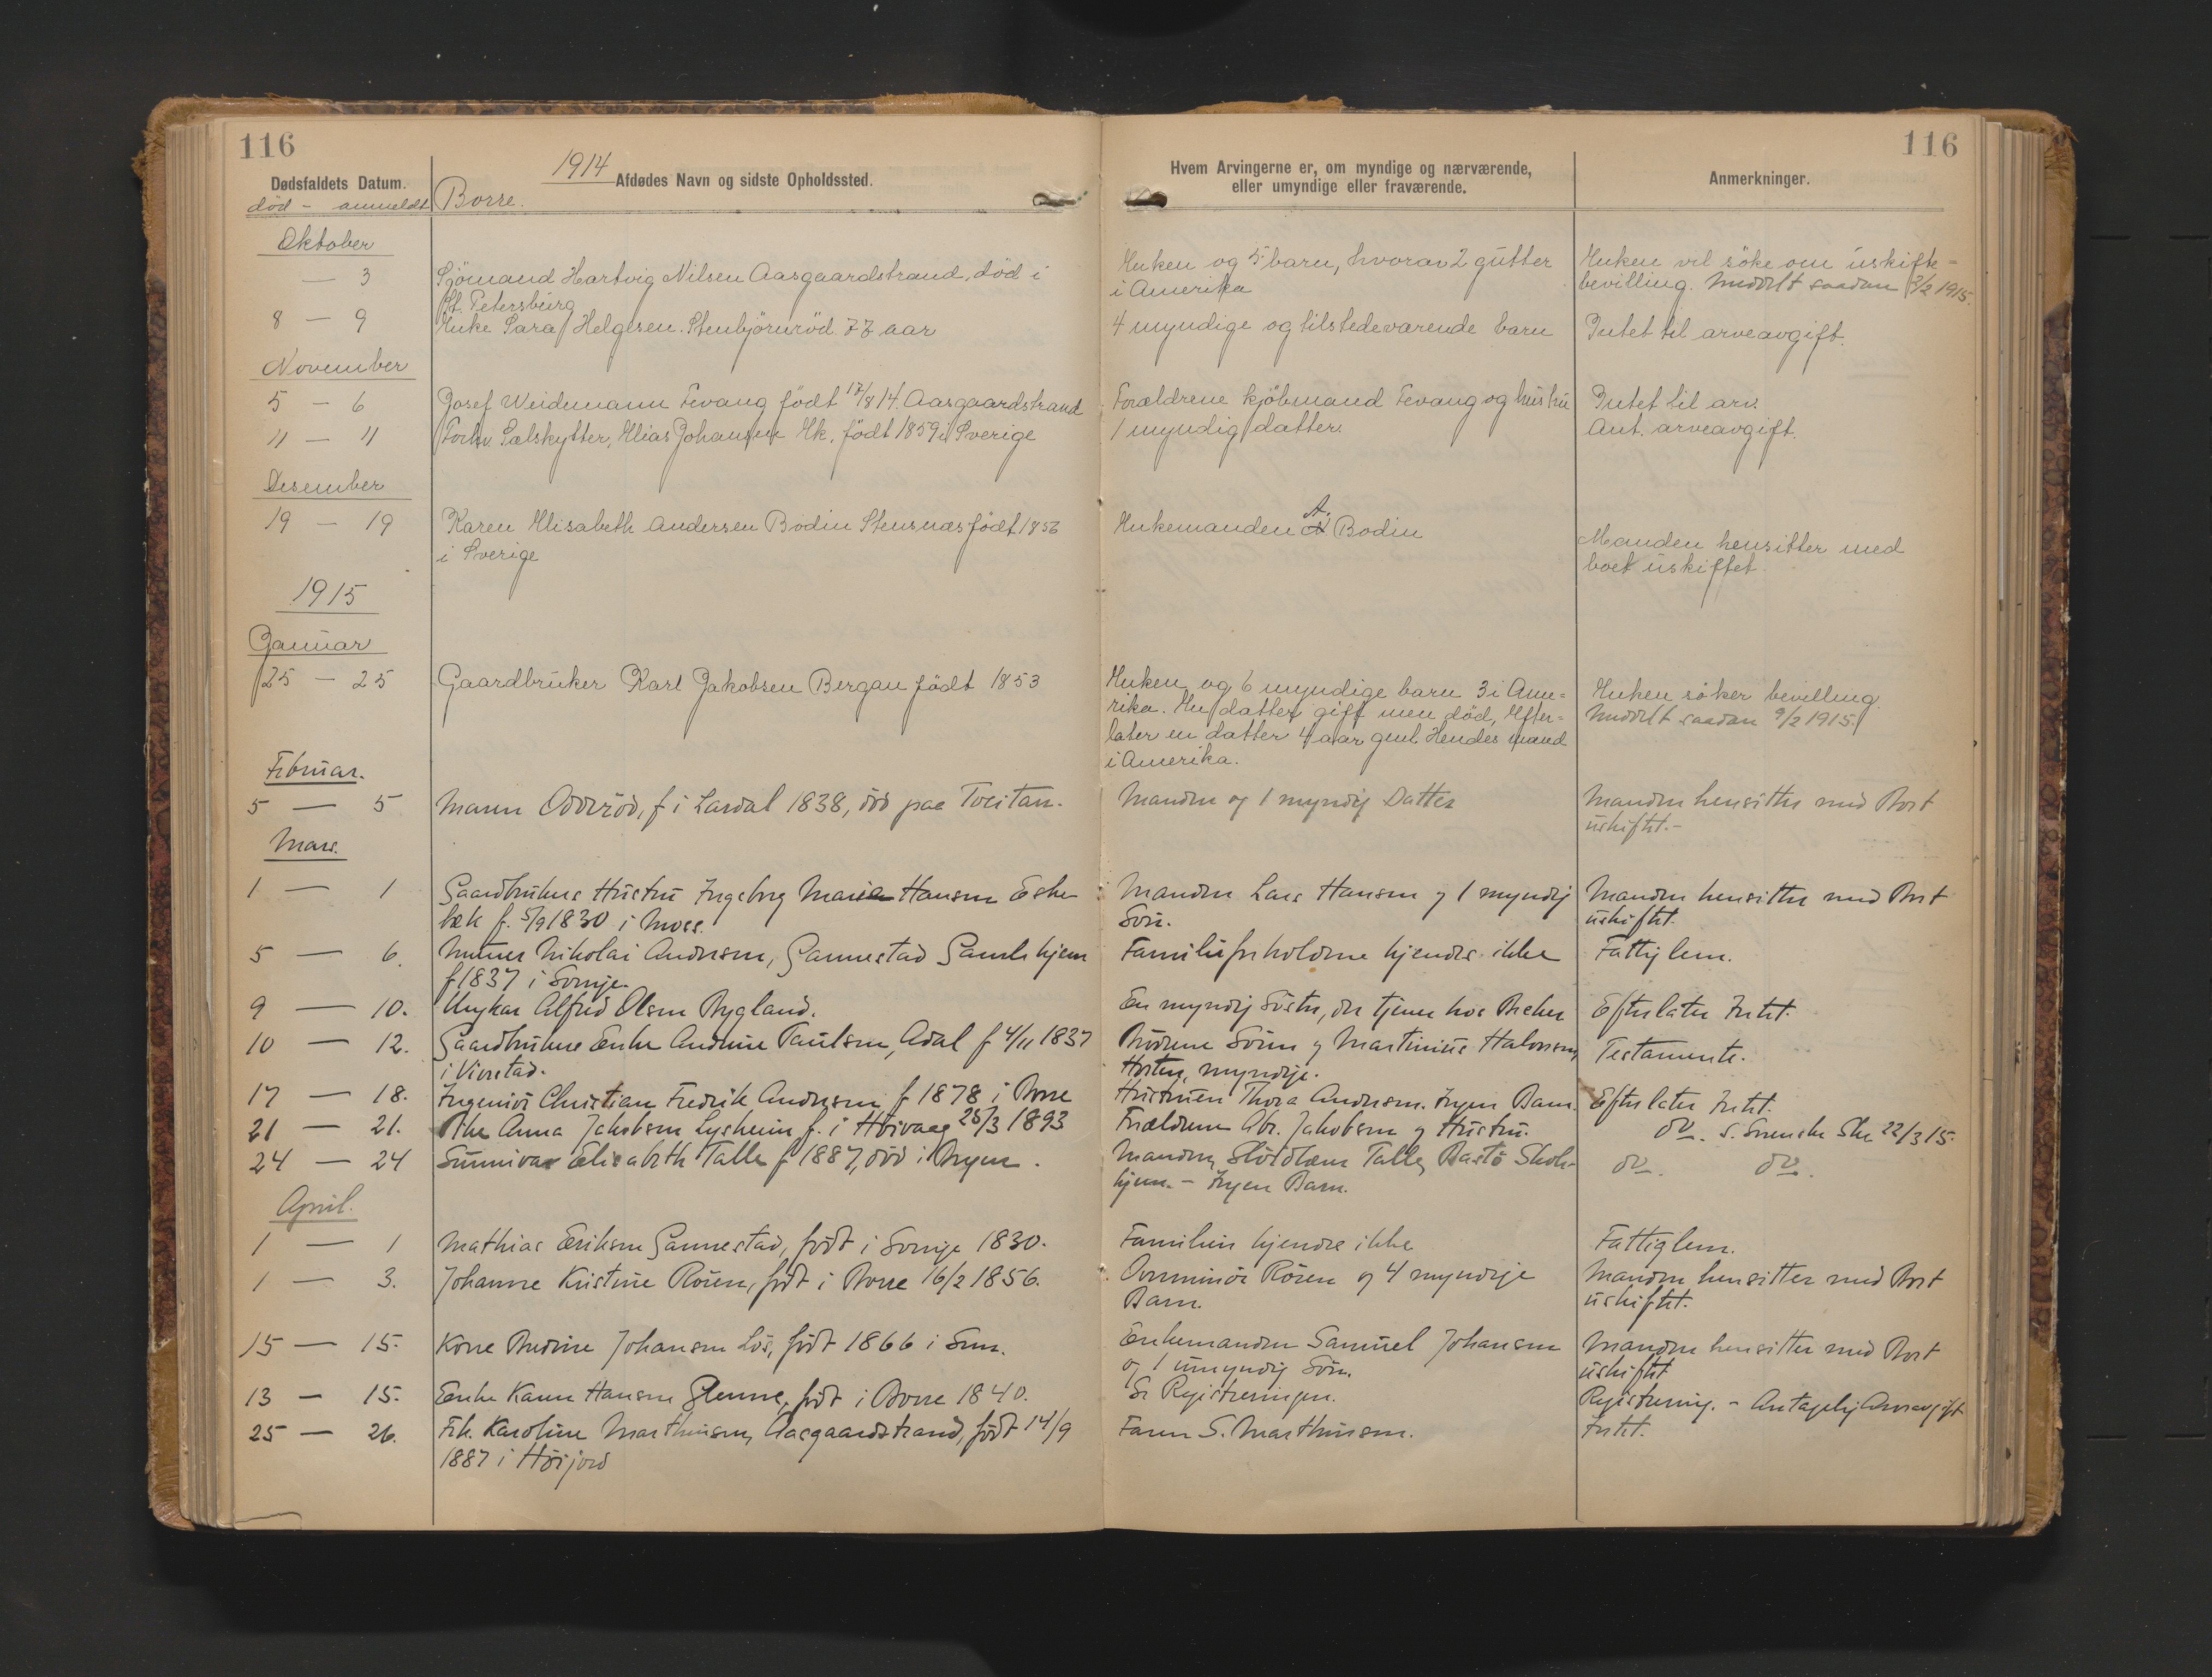 116
116
1914
Dødsfaldets Datum.
Afdødes Navn og sidste Opholdssted.
Hvem Arvingerne er, om myndige og nærværende,
eller umyndige eller fraværende.
Anmerkninger.
död - anmeldt
Borre.
Oktober
— 3
Sjömand Hartvig Nilsen Aasgaardstrand, död i
St. Petersburg
Enken og 5 barn, hvorav 2 gutter
i Amerika
Enken vil söke om uskifte-
bevilling. Meddelt saadan 9/2 1915.
8 — 9
Enke Sara Helgesen. Stenbjörnröd. 77 aar
4 myndige og tilstedeværende barn
Intet til arveavgift.
November
5 — 6
Josef Weidemann Fevang födt 17/8 14. Aasgaardstrand
Forældrene kjöbmand Fevang og hustru
Intet til arv.
11 — 11
Forhv. Sælskytter, Elias Johansen Ek. födt 1859 i Sverige
1 myndig datter.
Ant. arveavgift.
Desember
19 — 19
Karen Elisabeth Andersen Bodin Stensnæs födt 1856
i Sverige
Enkemanden A. Bodin
Manden hensitter med
boet uskiftet
1915
Januar
25 — 25
Gaardbruker Karl Jakobsen Bergan födt 1853
Enken og 6 myndige barn 3 i Ame-
rika. En datter gift men död, Efter-
later en datter 4 aar gml. Hendes mand
i Amerika.
Enken söker bevilling.
Meddelt saadan 9/2 1915.
Februar.
5 — 5
Maren Odderöd, f i Lardal 1838, död paa Tveitan.
Manden og 1 myndig Datter
Manden hensitter med Boet
uskiftet.-
Mars.
1 — 1
Gaardbrukers Hustru Ingeborg Maria Hansen Eske
bæk f. 5/9 1830 i Moss.
Manden Lars Hansen og 1 myndig
Sön.
Manden hensitter med Boet
uskiftet.
5 — 6.
Murer Nikolai Andersen, Gannestad Gamlehjem
f 1837 i Sverige.
Familieforholdene kjendes ikke
Fattiglem.
9 — 10.
Ungkar Alfred Olsen Bygland.
En myndig Söster, der tjener hos Becker
Efterlater Intet.
10 — 12.
Gaardbrukers Enke Andrine Paulsen, Adal f 4/11 1837
i Vivestad.
Brödrene Sören og Martinius Halvorsen
Horten, myndige.
Testamente.
17 — 18.
Ingeniör Christian Fredrik Andersen f 1878 i Borre
Hustruen Thora Andersen. Ingen Barn.
Efterlater Intet.
21 — 21.
Pike Anna Jakobsen Lysheim f. i Höivaag 28/3 1893
Forældrene Abr. Jakobsen og Hustru.
do. s. Svenske Ske 22/3 15.
24 — 24
Sunniva Elisabeth Talle f 1887, död i Bergen.
Manden, Slöidlærer Talle, Bastö Skole-
hjem. - Ingen Barn.
do. do.
April.
1 — 1
Mathias Eriksen Gannestad, födt i Sverige 1830.
Familien kjendes ikke
Fattiglem.
1 — 3.
Johanne Kristine Rören, födt i Borre 16/2 1856.
Overminör Rören og 4 myndige
Barn.
Manden hensitter med Boet
uskiftet.
15 — 15.
Kone Bredine Johansen Lös, födt 1866 i Sem.
Enkemanden Samuel Johansen
og 1 umyndig Sön.
Manden hensitter med Boet
uskiftet
13 — 15.
Enke Karen Hansen Glenne, födt i Borre 1840.
Se Registreringen.
Registrering. - Antagelig Arveavgift
25 — 26.
Frk. Karoline Marthinsen, Aasgaardstrand, födt 14/9
1887 i Höijord
Faren S. Marthinsen.
Intet.